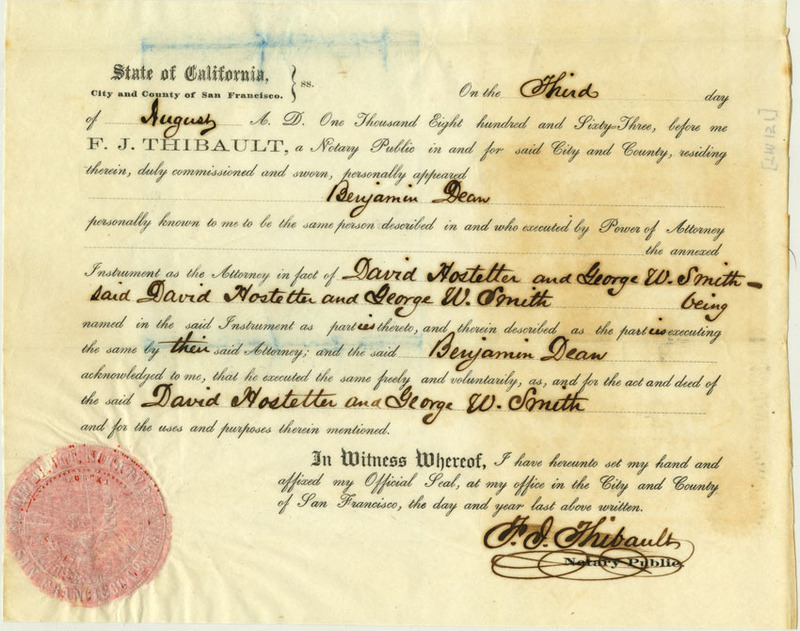 State of California,
City and County of San Francisco. } ss.
On the Third day
of August A. D. One Thousand Eight hundred and Sixty-Three, before me
F. J. THIBAULT, a Notary Public in and for said City and County, residing
therein, duly commissioned and sworn, personally appeared
Benjamin Dean
personally known to me to be the same person described in and who executed by Power of Attorney
the annexed
Instrument as the Attorney in fact of David Hostetter and George W. Smith-
said David Hostetter and George W. Smith being
named in the said Instrument as parties thereto, and therein described as the parties executing
the same by their said Attorney; and the said Benjamin Dean
acknowledged to me, that he executed the same freely and voluntarily, as, and for the act and deed of
the said David Hostetter and George W. Smith
and for the uses and purposes therein mentioned.
In Witness Whereof, I have hereunto set my hand and
affixed my Official Seal, at my office in the City and County
of San Francisco, the day and year last above written.
F. J. Thibault
Notary Public.